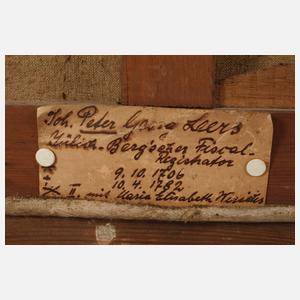 Joh. Peter Leers
Jülich-Berg'scher Fiscal-
Registrator
* 9. 10. 1706
10. 4. 1782
II. mit Maria Elisabeth